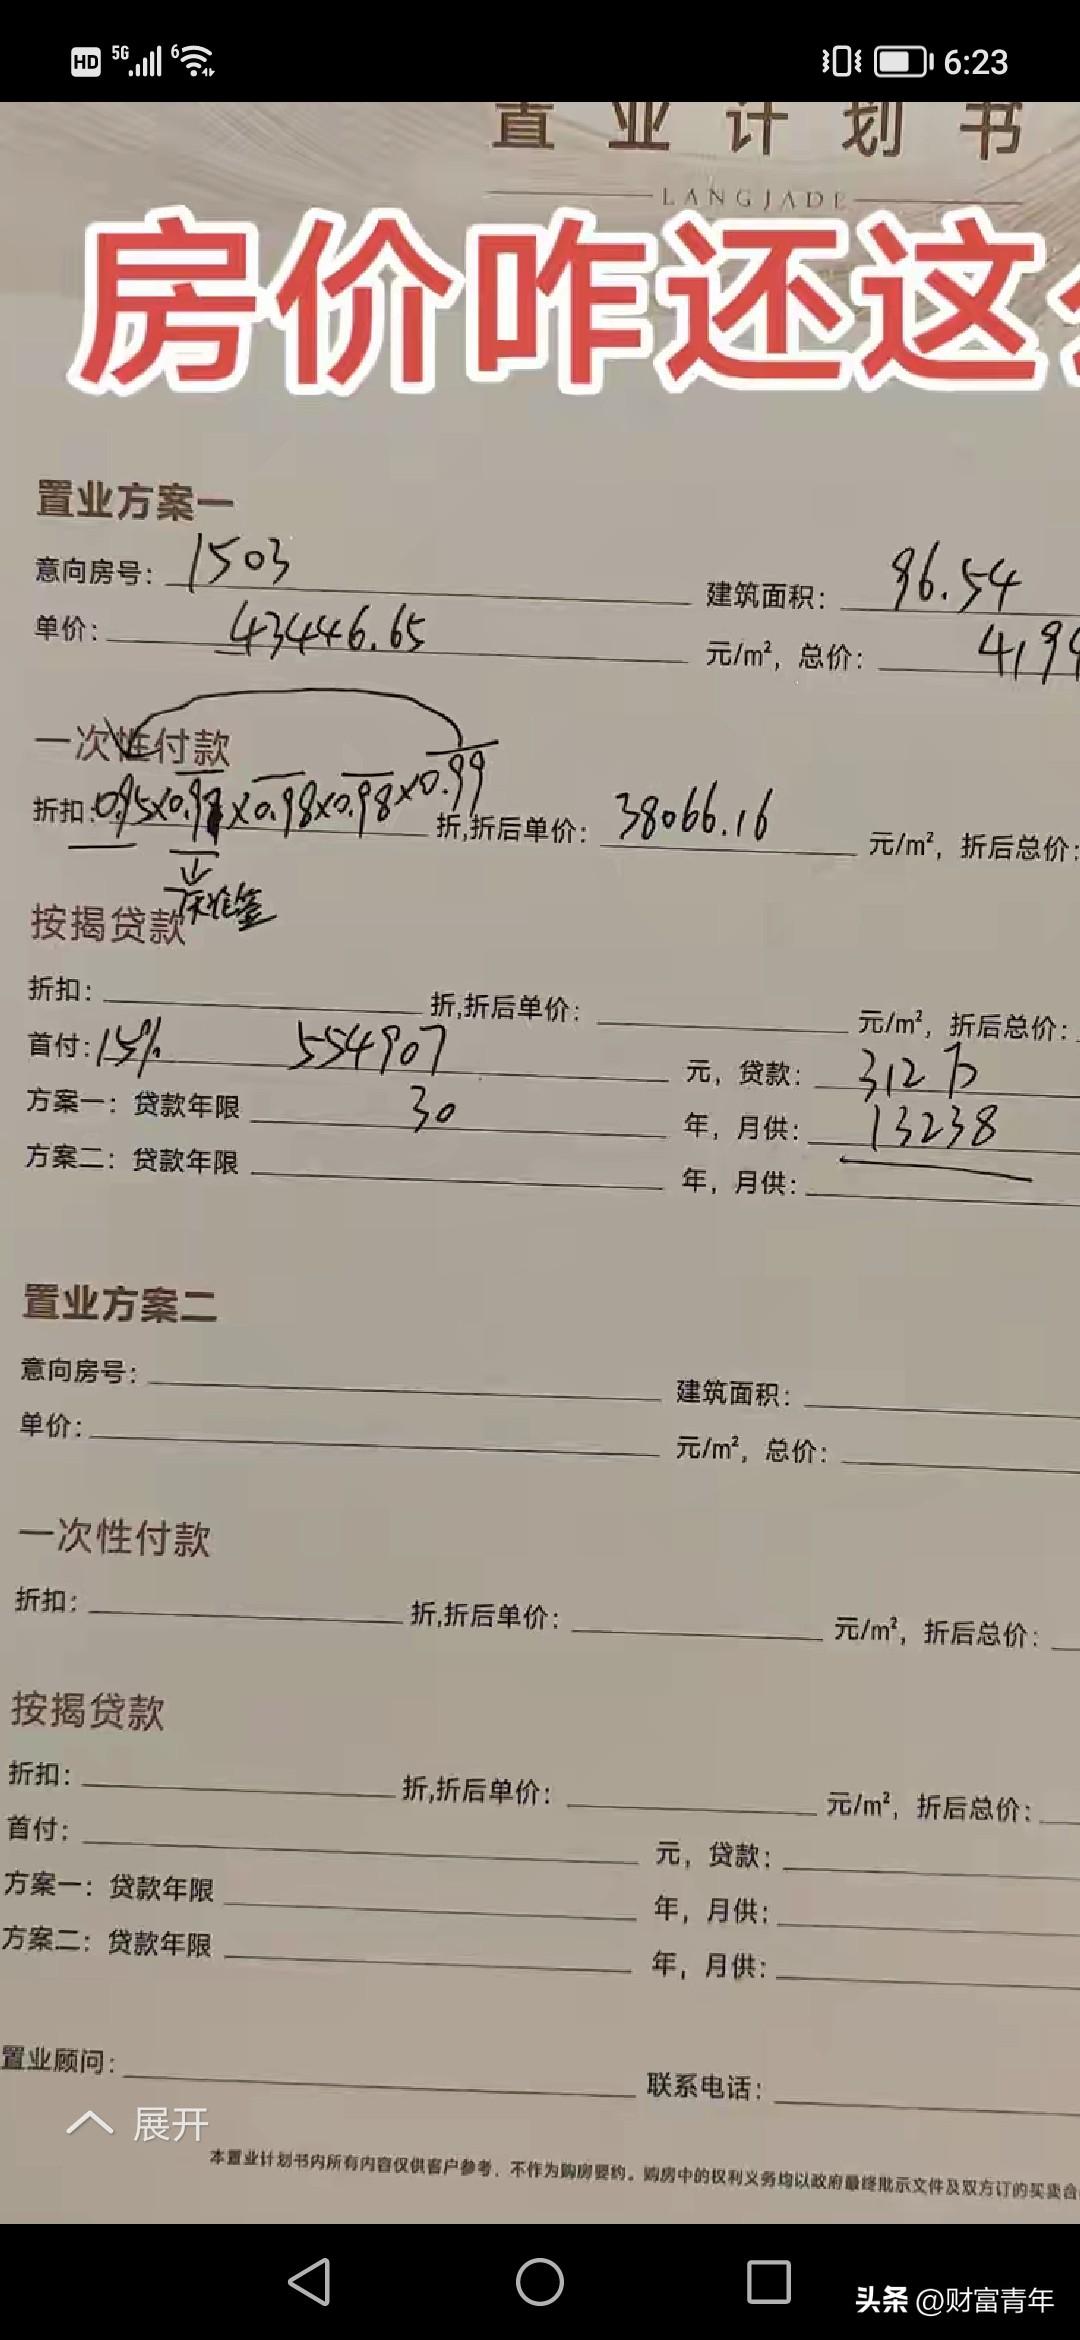 HD 5G 6 6:23
置业计划书
LANGJADE
房价咋还这
置业方案一
意向房号: 1503 建筑面积: 96.54
单价: 43446.65 元/m², 总价: 419
一次性付款
折扣: 0.95×0.98×0.98×0.98×0.99 折,折后单价: 38066.16 元/m², 折后总价:
按揭贷款
折扣: 折,折后单价: 元/m², 折后总价:
首付: 15% 554907 元, 贷款: 312万
方案一: 贷款年限 30 年, 月供: 13238
方案二: 贷款年限 年, 月供:
置业方案二
意向房号: 建筑面积:
单价: 元/m², 总价:
一次性付款
折扣: 折,折后单价: 元/m², 折后总价:
按揭贷款
折扣: 折,折后单价: 元/m², 折后总价:
首付: 元, 贷款:
方案一: 贷款年限 年, 月供:
方案二: 贷款年限 年, 月供:
置业顾问: 联系电话:
展开
本置业计划书内所有内容仅供客户参考, 不作为购房要约。购房中的权利义务均以政府最终批示文件及双方订的买卖合
头条 @财富青年